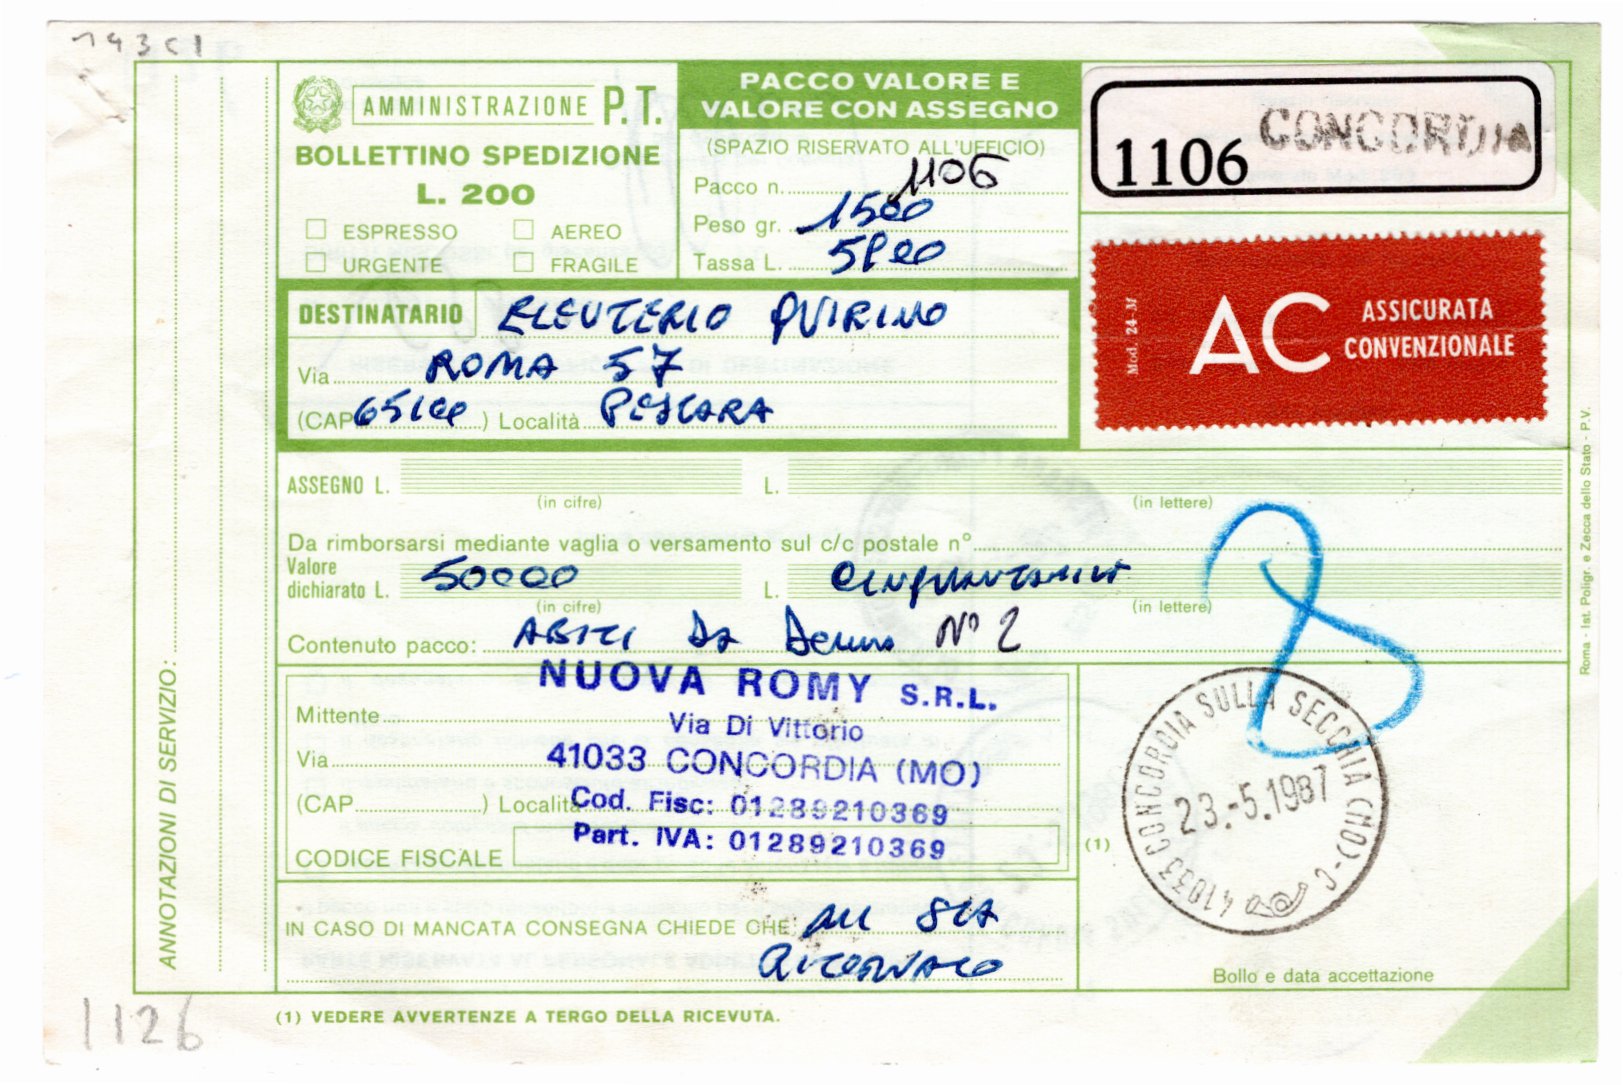 143 c1
AMMINISTRAZIONE P.T.
BOLLETTINO SPEDIZIONE
L. 200
ESPRESSO AEREO
URGENTE FRAGILE
PACCO VALORE E
VALORE CON ASSEGNO
(SPAZIO RISERVATO ALL'UFFICIO)
Pacco n. 1106
Peso gr. 1500
Tassa L.
1106 CONCORDIA
Mod. 24-M
AC ASSICURATA
CONVENZIONALE
DESTINATARIO ELEUTERIO QUIRINO
Via ROMA 57
(CAP 65100 ) Località PESCARA
ASSEGNO L. L.
(in cifre) (in lettere)
Da rimborsarsi mediante vaglia o versamento sul c/c postale n°
Valore
dichiarato L. 50000 L. Cinquantamila
(in cifre) (in lettere)
Contenuto pacco: ABITI Da Donna N° 2
8
NUOVA ROMY S.R.L.
Mittente
Via Di Vittorio
Via
41033 CONCORDIA (MO)
(CAP ) Località
Cod. Fisc: 01289210369
Part. IVA: 01289210369
CODICE FISCALE
(1)
41033 CONCORDIA SULLA SECCHIA (MO)-C
23.-5.1987
IN CASO DI MANCATA CONSEGNA CHIEDE CHE: SIA
Bollo e data accettazione
ANNOTAZIONI DI SERVIZIO:
Roma - Ist. Poligr. e Zecca dello Stato - P.V.
(1) VEDERE AVVERTENZE A TERGO DELLA RICEVUTA.
1126